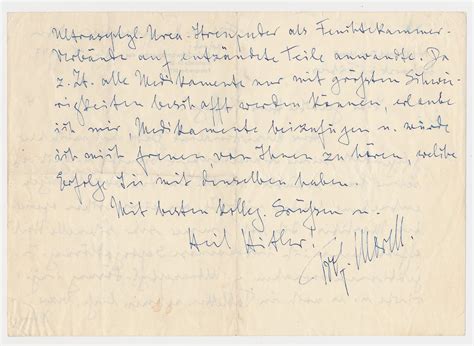 Ultraseptyl-Urea-Streupuder als Feuchtekammer-
Verbände auf entzündete Teile anwandte. Da
z. Zt. alle Medikamente nur mit größten Schwie-
rigkeiten beschafft werden können, erlaube
ich mir, Medikamente beizufügen u. würde
ich mich freuen, von Ihnen zu hören, welche
Erfolge Sie mit denselben haben.
Mit besten kolleg. Grüßen u.
Heil Hitler!
Morell.